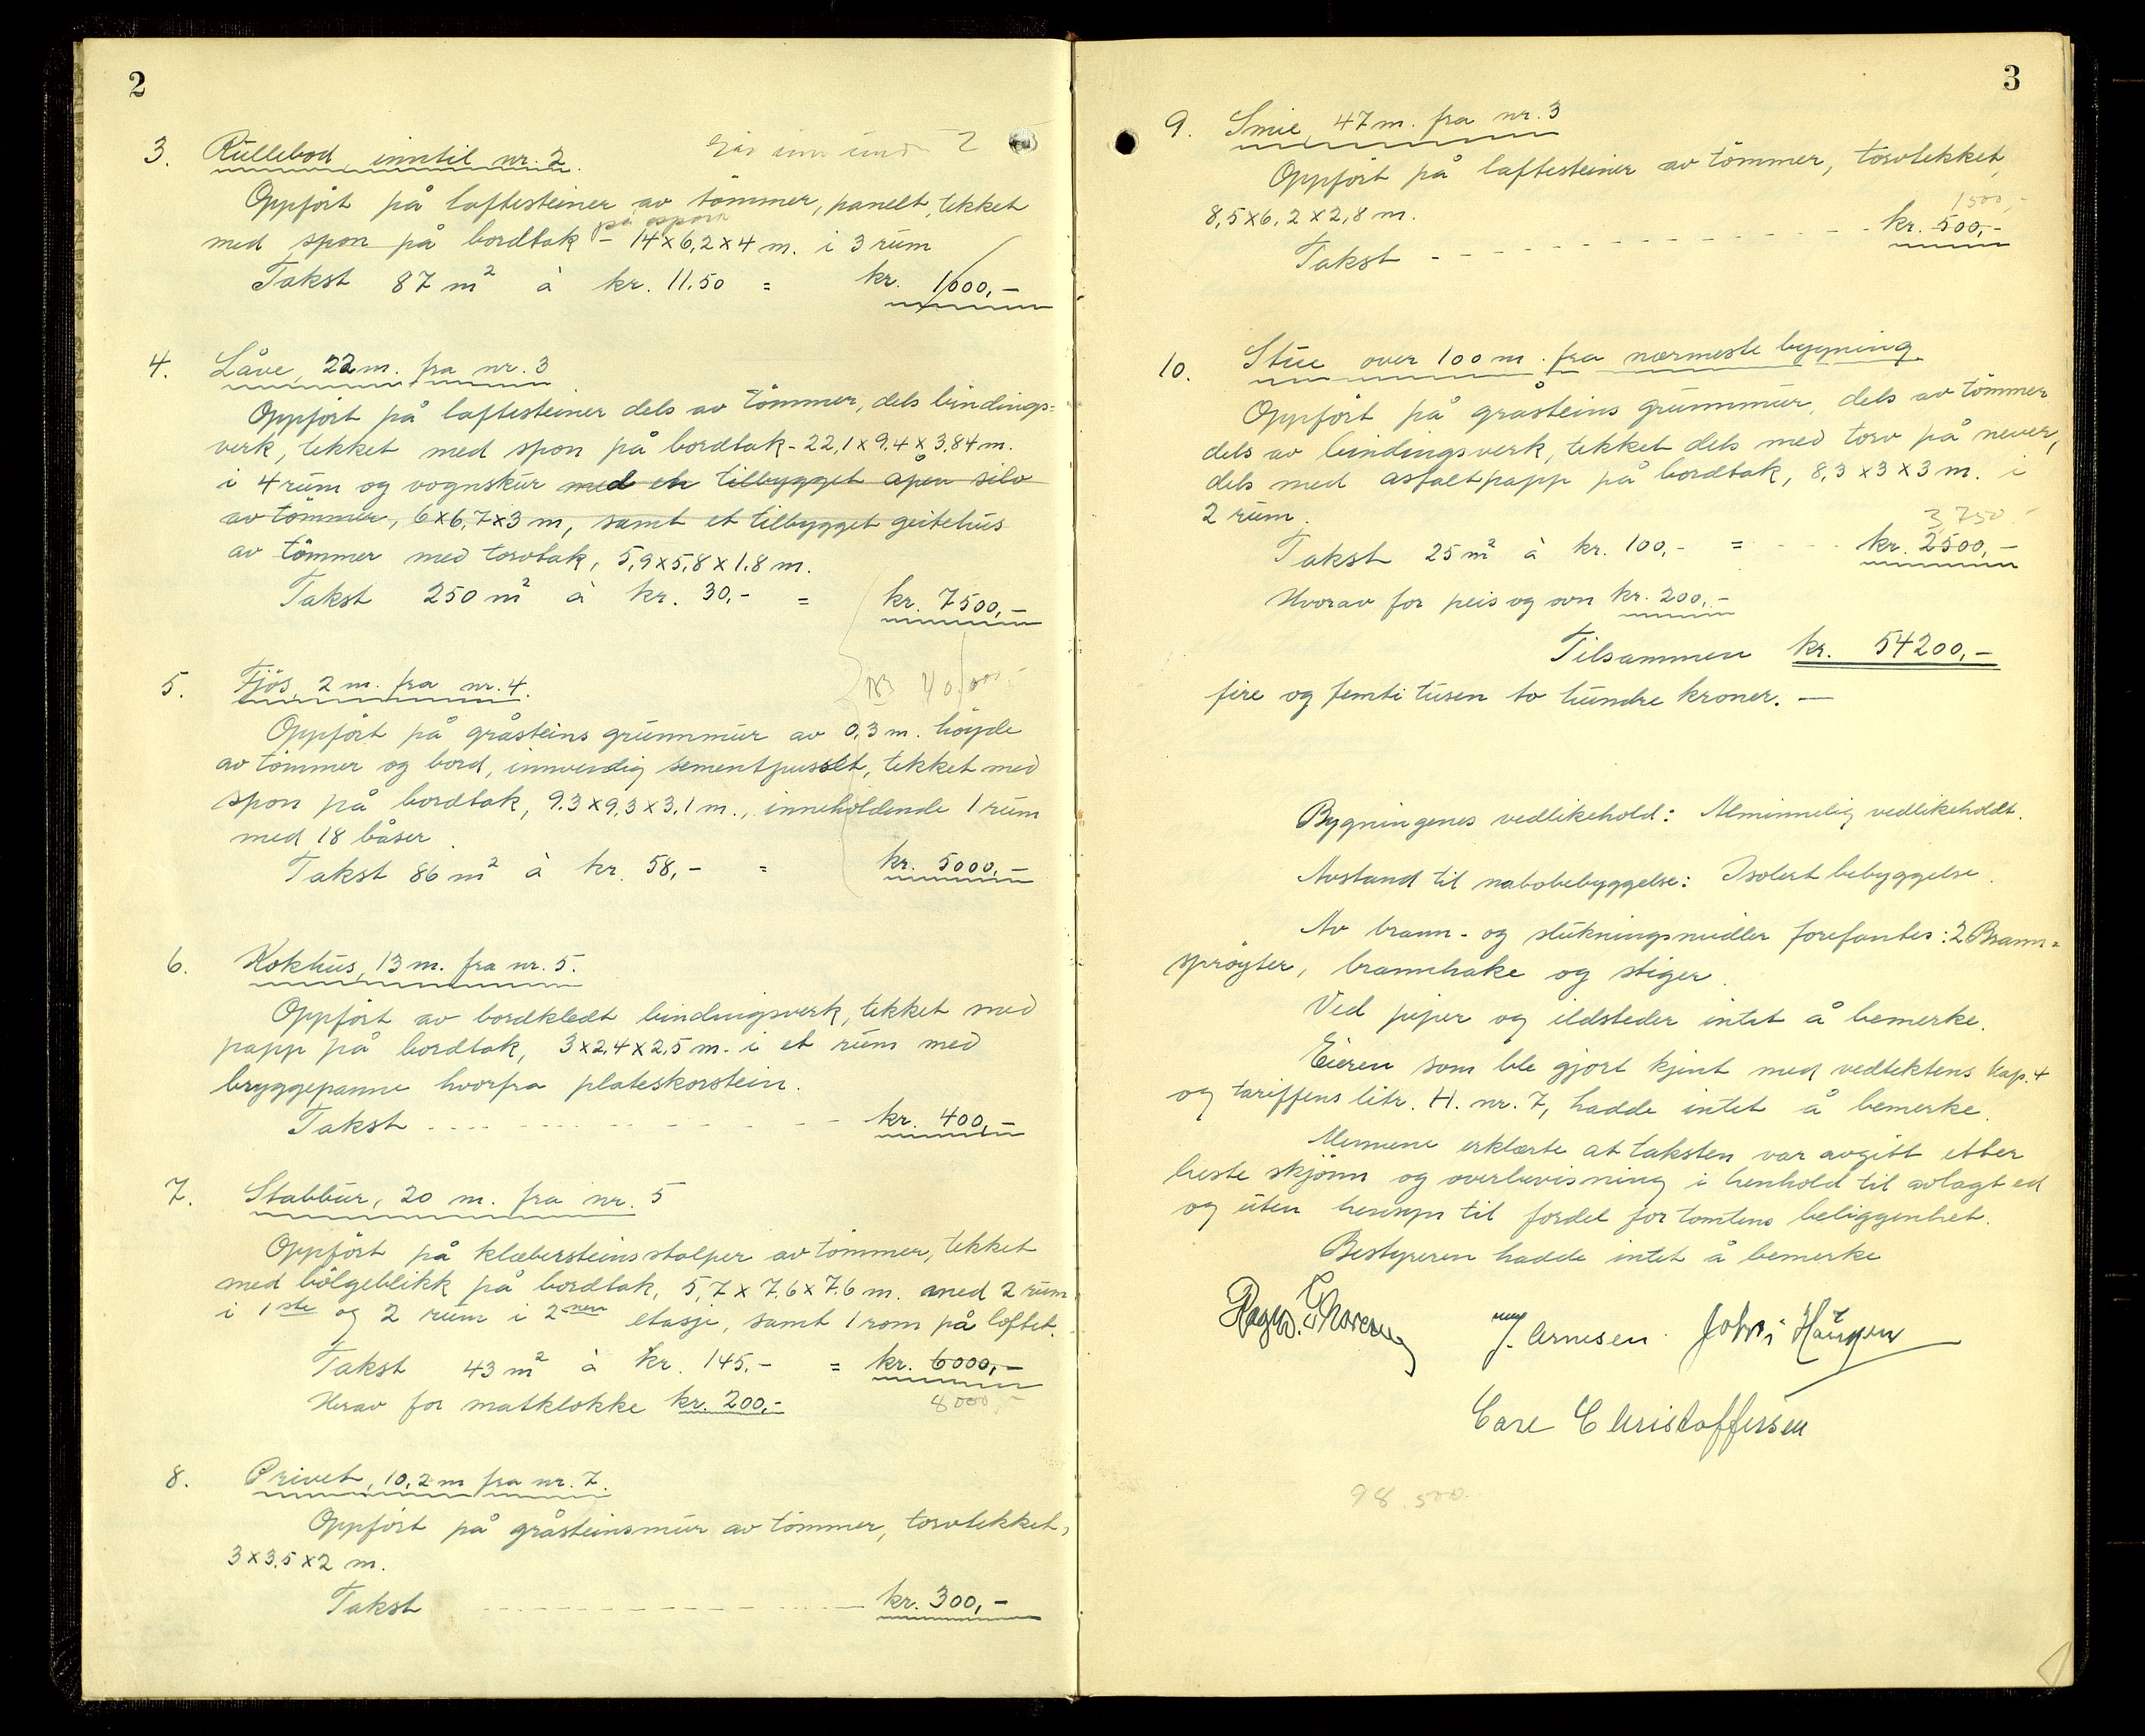 2
3. Rullebod, inntil nr. 2. Går inn under 2
Oppført på laftesteiner av tømmer, panelt, tekket
på spon
med spon på bordtak - 14x6,2x4 m. i 3 rum
Takst 87 m² à kr. 11.50 = kr. 1000,-
4. Låve, 22 m. fra nr. 3
Oppført på laftesteiner dels av tømmer, dels bindings=
verk, tekket med spon på bordtak - 22,1x9,4x3,84 m.
i 4 rum og vognskur med en tilbygget åpen silo
av tømmer, 6x6,7x3 m, samt et tilbygget geitehus
av tømmer med torvtak, 5,9x5,8x1.8 m.
Takst 250 m² à kr. 30,- = kr. 7500,-
5. Fjøs, 2 m. fra nr. 4.
Oppført på gråsteins grunnmur av 0,3 m. høyde
av tømmer og bord, innvendig sementpusset, tekket med
spon på bordtak, 9.3x9,3x3,1 m., inneholdende 1 rum
med 18 båser.
Takst 86 m² à kr. 58,- = kr. 5000,-
6. Kokhus, 13 m. fra nr. 5.
Oppført av bordkledt bindingsverk, tekket med
papp på bordtak, 3x2,4x2,5 m. i et rum med
bryggepanne hvorfra plateskorstein.
Takst kr. 400,-
7. Stabbur, 20 m. fra nr. 5
Oppført på klebersteinsstolper av tømmer, tekket
med bølgeblikk på bordtak, 5,7x7,6x7.6 m. med 2 rum
i 1ste og 2 rum i 2nen etasje, samt 1 rom på loftet.
Takst 43 m² à kr. 145,- = kr. 6000,-
Herav for matklokke kr. 200,- 8000,-
8. Privet, 10,2 m fra nr. 7.
Oppført på gråsteinsmur av tømmer, torvtekket,
3x3,5x2 m.
Takst kr. 300,-
3
9. Smie, 47 m. fra nr. 3
Oppført på laftesteiner av tømmer, torvtekket,
8,5x6,2x2,8 m. 1500,-
Takst kr. 500,-
10. Stue over 100 m. fra nærmeste bygning
Oppført på gråsteins grunnmur, dels av tømmer
dels av bindingsverk, tekket dels med torv på never,
dels med asfaltpapp på bordtak, 8,3x3x3 m. i
2 rum. 3,750 -
Takst 25 m² à kr. 100,- = kr. 2500,-
Hvorav for peis og ovn kr. 200,-
Tilsammen kr. 54200,-
fire og femti tusen to hundre kroner. —
Bygningenes vedlikehold: Alminnelig vedlikeholdt.
Avstand til nabobebyggelse: Isolert bebyggelse.
Av brann- og slukningsmidler forefantes: 2 Brann=
sprøyter, brannhake og stiger.
Ved piper og ildsteder intet å bemerke.
Eieren som ble gjort kjent med vedtektens kap. 4
og tariffens litr. H. nr. 7, hadde intet å bemerke.
Mennene erklærte at taksten var avgitt etter
beste skjønn og overbevisning i henhold til avlagt ed
og uten hensyn til fordel for tomtens beliggenhet.
Bestyreren hadde intet å bemerke
J. Arnesen John Haugen
Care Christoffersen
98.500.